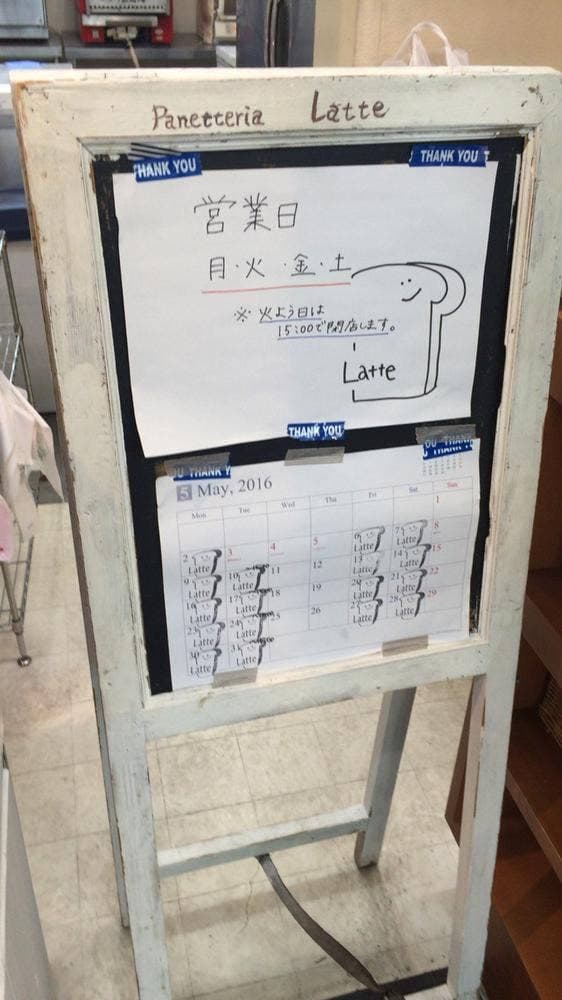 Panetteria Latte
THANK YOU THANK YOU
営業日
月・火・金・土
※ 火よう日は
15:00で閉店します。
Latte
THANK YOU
U THANK Y
OU THANK
U THANK YOU
5 May, 2016
Mon Tue Wed Thu Fri Sat Sun
1
2 Latte 3 4 5 6 Latte 7 Latte 8
9 Latte 10 Latte 11 12 13 Latte 14 Latte 15
16 Latte 17 Latte 18 19 20 Latte 21 Latte 22
23 Latte 24 Latte 25 26 27 Latte 28 Latte 29
30 Latte 31 Latte